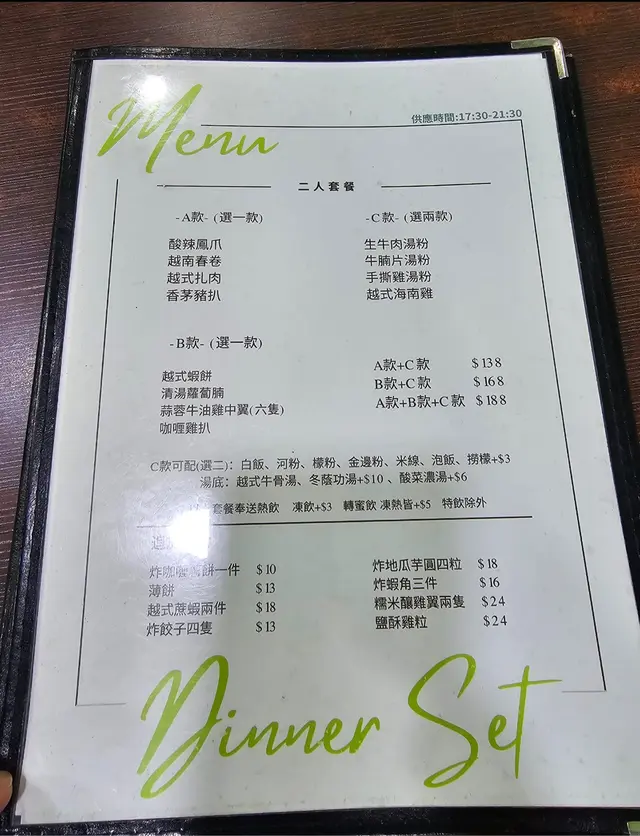 Menu
供應時間:17:30-21:30
二人套餐
-A款- (選一款)
酸辣鳳爪
越南春卷
越式扎肉
香茅豬扒
-C款- (選兩款)
生牛肉湯粉
牛腩片湯粉
手撕雞湯粉
越式海南雞
-B款- (選一款)
越式蝦餅
清湯蘿蔔腩
蒜蓉牛油雞中翼(六隻)
咖喱雞扒
A款+C款 $138
B款+C款 $168
A款+B款+C款 $188
C款可配(選二): 白飯、河粉、檬粉、金邊粉、米線、泡飯、撈檬+$3
湯底: 越式牛骨湯、冬蔭功湯+$10、酸菜濃湯+$6
套餐奉送熱飲 凍飲+$3 轉蜜飲 凍熱皆+$5 特飲除外
炸咖喱 餅一件 $10
薄餅 $13
越式蔗蝦兩件 $18
炸餃子四隻 $13
炸地瓜芋圓四粒 $18
炸蝦角三件 $16
糯米釀雞翼兩隻 $24
鹽酥雞粒 $24
Dinner Set